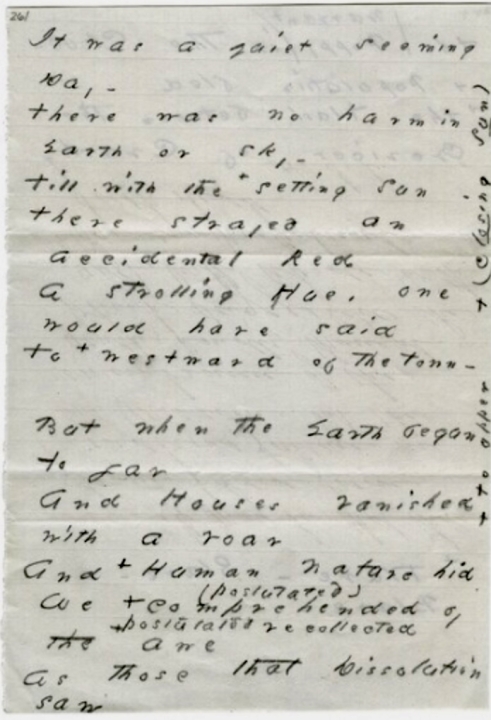 261
It was a quiet seeming
Day -
there was no harm in
Earth or sky -
till with the + setting sun
there strayed an
accidental Red
A strolling Hue, one
would have said
to + westward of the Town -
But when the Earth began
to jar
And Houses vanished
with a roar
And + Human Nature hid
(postulated)
We + comprehended by
+ postulated recollected
the awe
As those that Dissolution
saw
+ (Closing Sun)
+ to upper